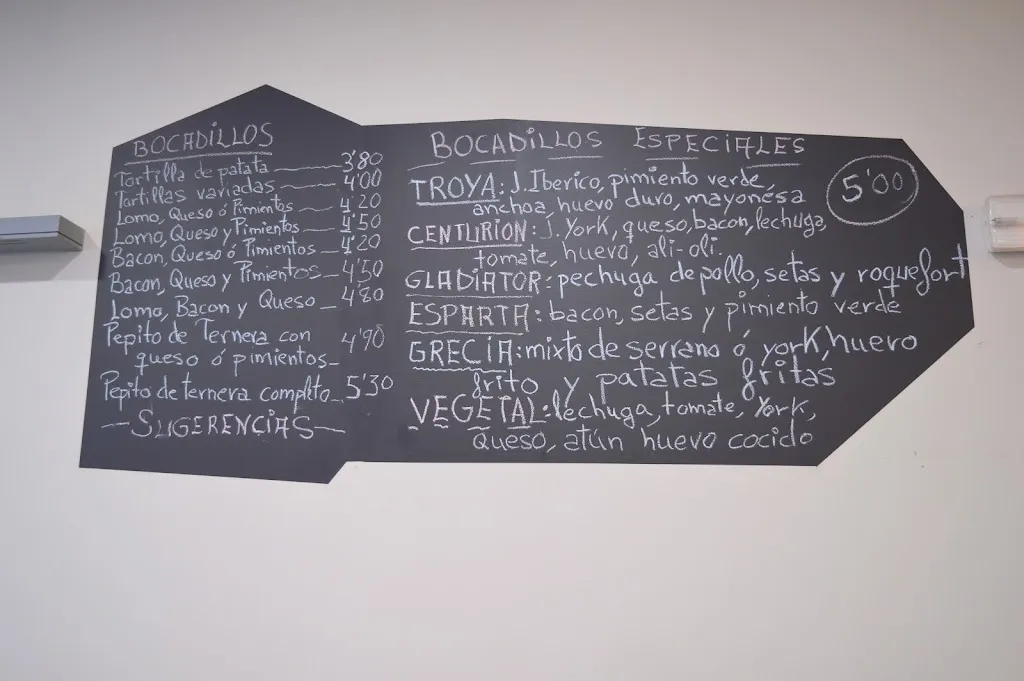 BOCADILLOS
Tortilla de patata 3'80
Tortillas variadas 4'00
Lomo, Queso ó Pimientos 4'20
Lomo, Queso y Pimientos 4'50
Bacon, Queso ó Pimientos 4'20
Bacon, Queso y Pimientos 4'50
Lomo, Bacon y Queso 4'80
Pepito de Ternera con 4'90
queso ó pimientos
Pepito de ternera completo 5'30
SUGERENCIAS
BOCADILLOS ESPECIALES
5'00
TROYA: J. Iberico, pimiento verde,
anchoa, huevo duro, mayonesa
CENTURION: J. York, queso, bacon, lechuga,
tomate, huevo, ali-oli.
GLADIATOR: pechuga de pollo, setas y roquefort
ESPARTA: bacon, setas y pimiento verde
GRECIA: mixto de serrano ó york, huevo
frito y patatas fritas
VEGETAL: lechuga, tomate, York,
queso, atún huevo cocido